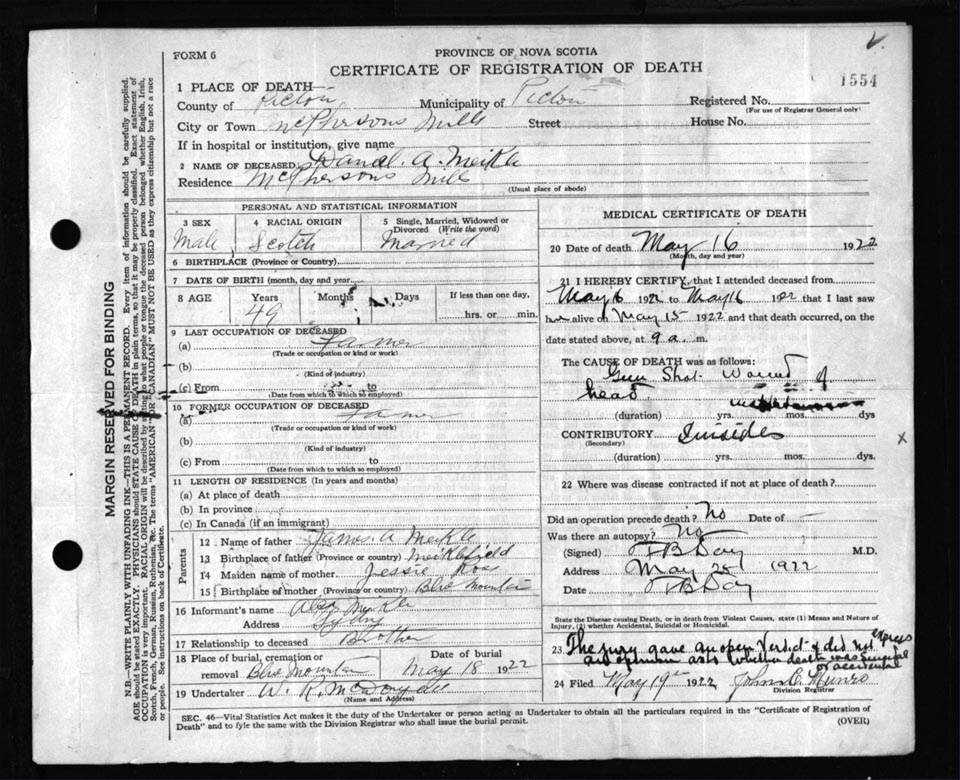 FORM 6
PROVINCE OF NOVA SCOTIA
CERTIFICATE OF REGISTRATION OF DEATH
1554
1 PLACE OF DEATH—
County of Pictou Municipality of Pictou Registered No.
(For use of Registrar General only)
City or Town McPhersons Mills Street House No.
If in hospital or institution, give name
2 NAME OF DECEASED A. Meikle
Residence McPhersons Mills
(Usual place of abode)
PERSONAL AND STATISTICAL INFORMATION
3 SEX 4 RACIAL ORIGIN 5 Single, Married, Widowed or Divorced (Write the word)
Male Scotch Married
6 BIRTHPLACE (Province or Country)
7 DATE OF BIRTH (month, day and year
8 AGE Years Months Days If less than one day,
49 hrs. or min.
9 LAST OCCUPATION OF DECEASED
(a) Farmer
(Trade or occupation or kind or work)
(b)
(Kind of industry)
(c) From to
(Date from which to which so employed)
10 FORMER OCCUPATION OF DECEASED
(a) Farmer
(Trade or occupation or kind of work)
(b)
(Kind of industry)
(c) From to
(Date from which to which so employed)
11 LENGTH OF RESIDENCE (In years and months)
(a) At place of death
(b) In province
(c) In Canada (if an immigrant)
Parents
12 Name of father James A Meikle
13 Birthplace of father (Province or country) Meiklefield
14 Maiden name of mother Jessie Ross
15 Birthplace of mother (Province or country) Blue Mountain
16 Informant's name Alex Meikle
Address Sydney
17 Relationship to deceased Brother
18 Place of burial, cremation or removal Blue Mountain Date of burial May 18 1922
19 Undertaker W. R. McDougall
(Name and Address)
MEDICAL CERTIFICATE OF DEATH
20 Date of death May 16 1922
(Month, day and year)
21 I HEREBY CERTIFY, that I attended deceased from
May 16 1922 to May 16 1922 that I last saw
h alive on May 15 1922 and that death occurred, on
date stated above, at 9 a. m.
The CAUSE OF DEATH was as follows:
Gun Shot Wound of
head
(duration) yrs. mos. dys
CONTRIBUTORY Suicides
(Secondary)
x
(duration) yrs. mos. dys.
22 Where was disease contracted if not at place of death?
Did an operation precede death? No Date of —
Was there an autopsy? No
(Signed) Day M.D.
Address May 25 1922
Date Day
State the Disease causing Death, or in Death from Violent Causes, state (1) Means and Nature of Injury, (2) whether Accidental, Suicidal or Homicidal.
23 The jury gave an open Verdict & did not express
an opinion as to whether death was suicidal
or accidental
24 Filed May 19th 1922 John D. Munro
Division Registrar
SEC. 46—Vital Statistics Act makes it the duty of the Undertaker or person acting as Undertaker to obtain all the particulars required in the "Certificate of Registration of
Death" and to fyle the same with the Division Registrar who shall issue the burial permit.
(OVER)
MARGIN RESERVED FOR BINDING
N.B.—WRITE PLAINLY WITH UNFADING INK—THIS IS A PERMANENT RECORD. Every item of information should be carefully supplied.
AGE should be stated EXACTLY. PHYSICIANS should STATE CAUSE OF DEATH in plain terms, so that it may be properly classified. Exact statement of
OCCUPATION is very important. RACIAL ORIGIN will be described by stating to what people or tongue the deceased person belonged whether English, Irish,
Scotch, French, German, Russian, Ruthenian, etc. The terms "AMERICAN" OR "CANADIAN" MUST NOT BE USED as they express citizenship but not a race
or people. See instructions on back of Certificate.